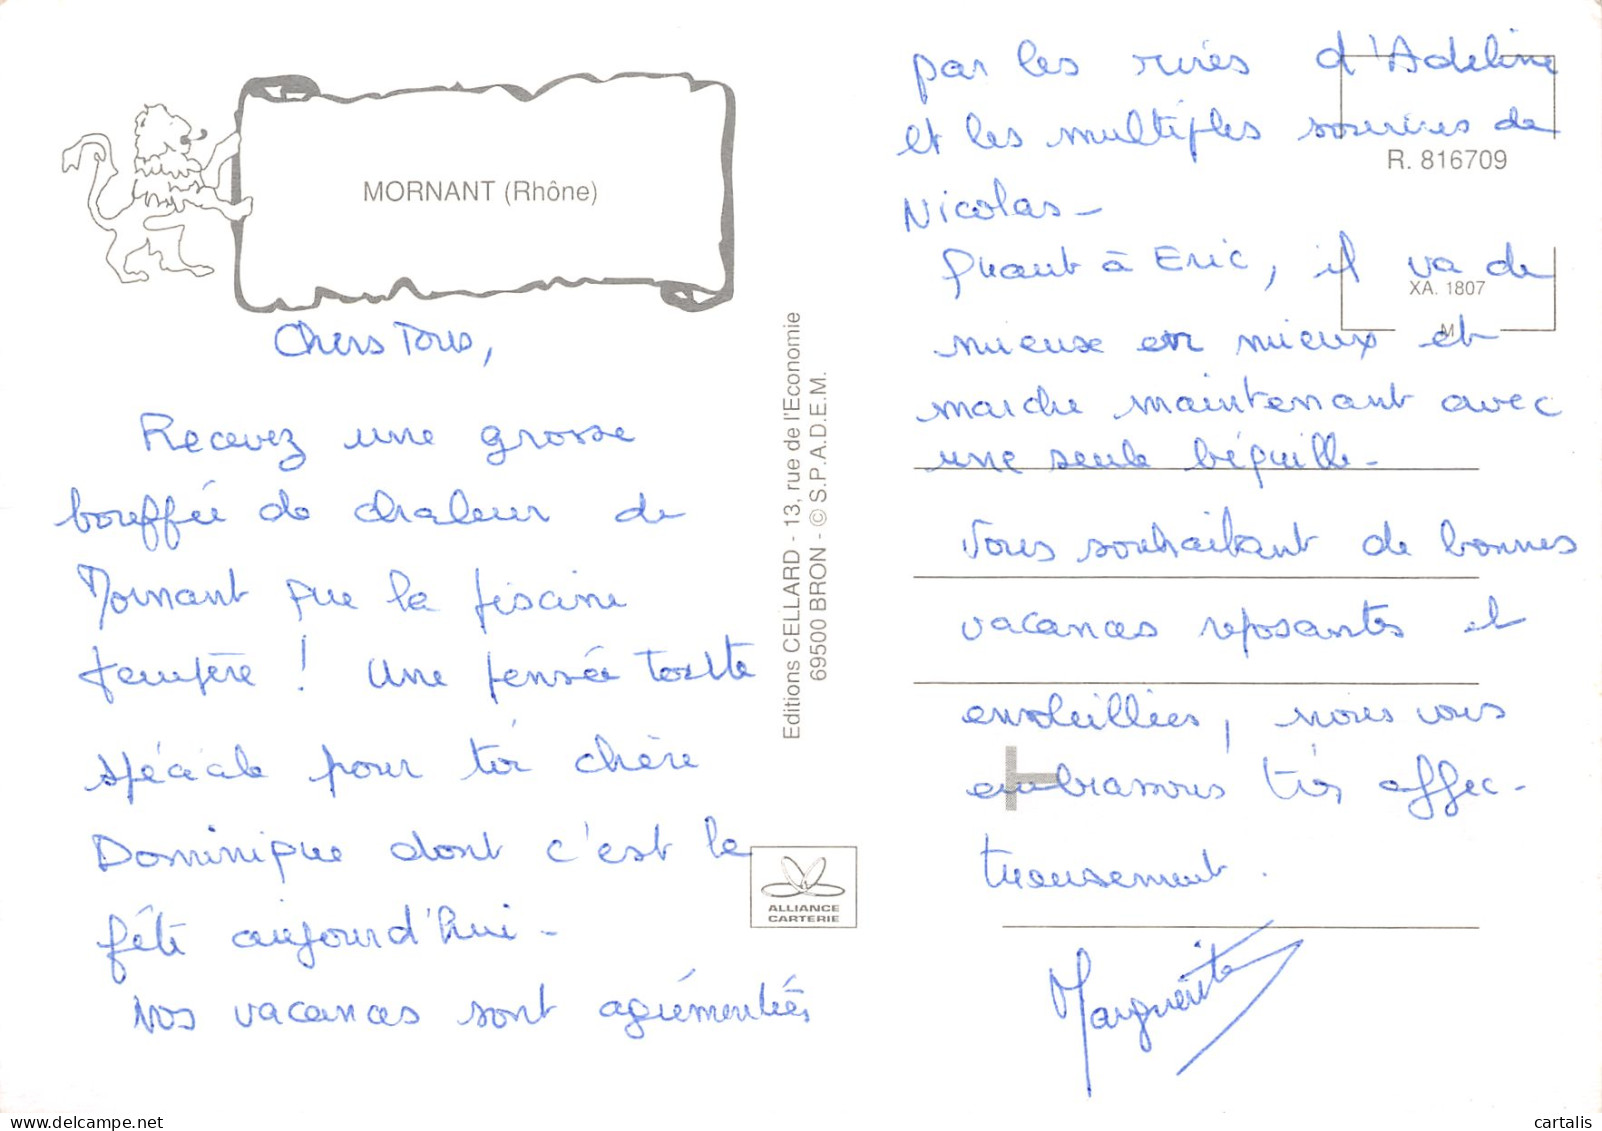 MORNANT (Rhône)
Chers Tous,
Recevez une grosse
bouffée de chaleur de
Mornant que la piscine
tempère ! Une pensée toute
spéciale pour toi chère
Dominique dont c'est la
fête aujourd'hui -
Nos vacances sont agrémentées
Editions CELLARD - 13, rue de l'Economie
69500 BRON - © S.P.A.D.E.M.
ALLIANCE
CARTERIE
par les rires d'Adeline
et les multiples sourires de
R. 816709
Nicolas -
Quant à Eric, il va de
XA. 1807
mieux en mieux et
marche maintenant avec
une seule béquille -
Vous souhaitant de bonnes
vacances reposantes et
ensoleillées, nous vous
embrassons très affec-
tueusement.
Marguerite
cartalis | delcampe.net